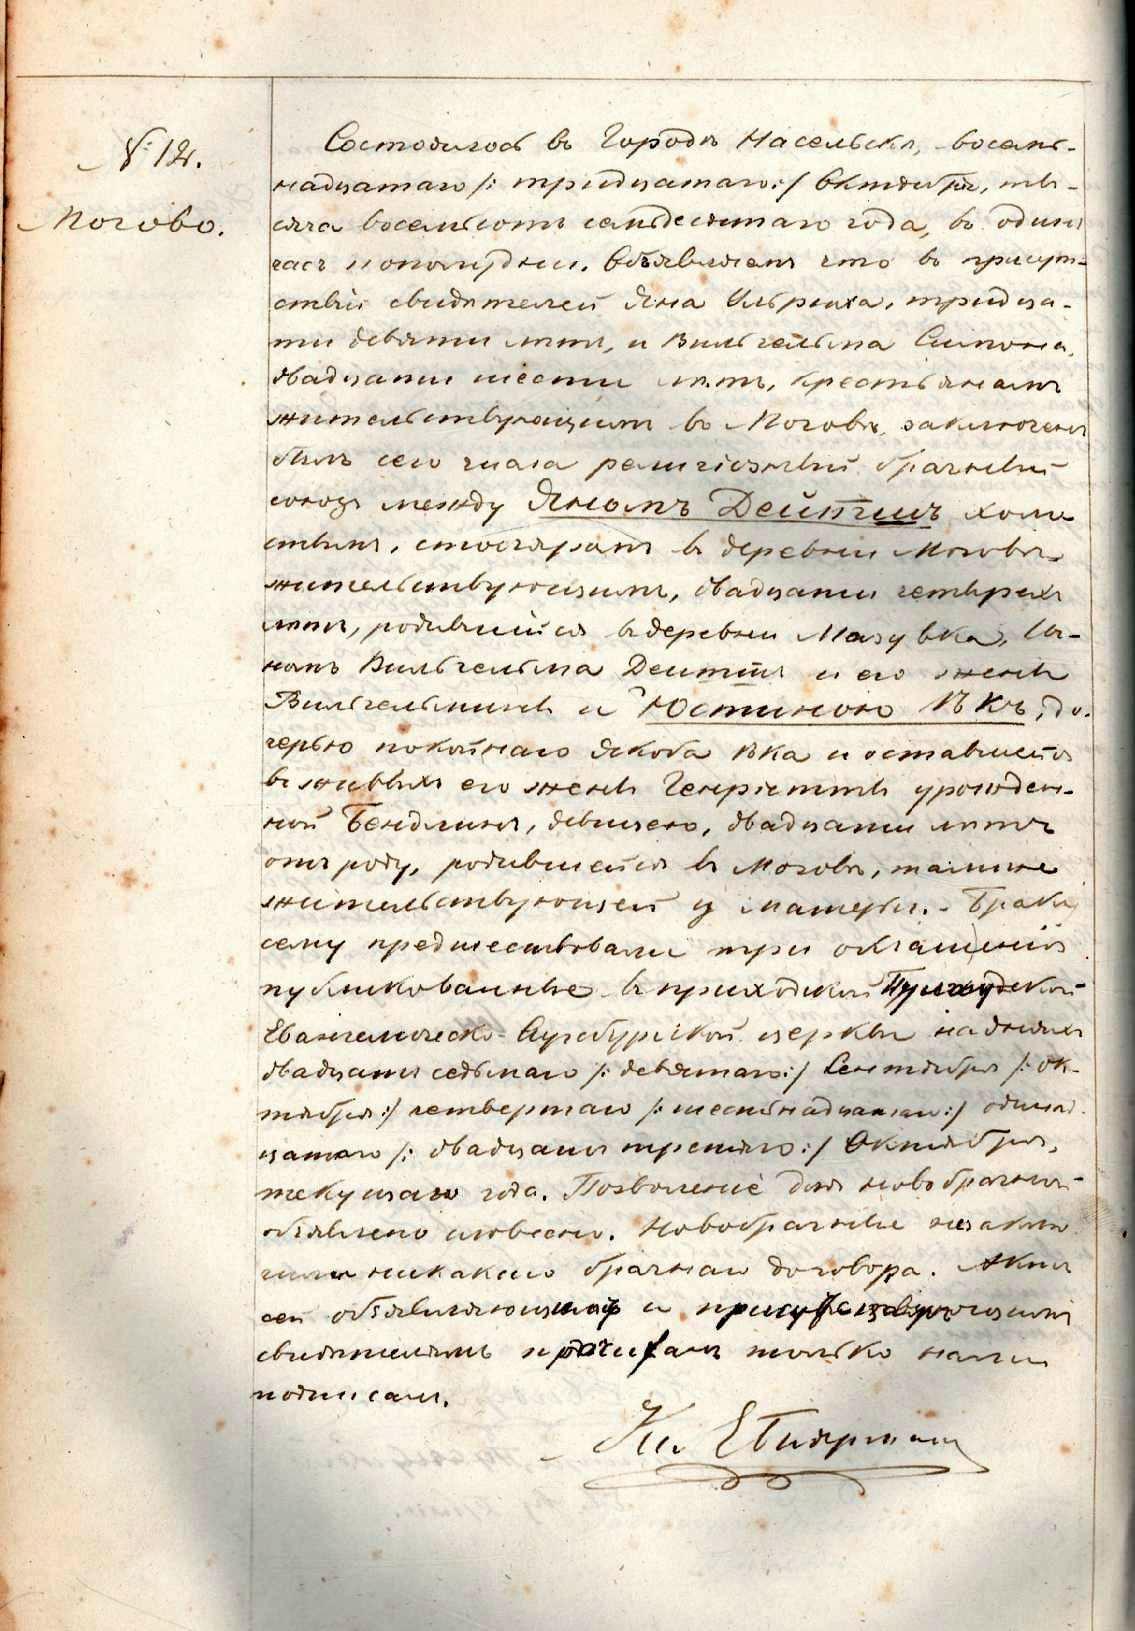 № 12.
Могово.
Состоялось въ Городѣ Насельскѣ, восем-
надцатаго /: тридцатаго :/ Октября, ты-
сяча восемьсотъ семьдесятаго года, въ одинъ
часъ пополудни. Объявляемъ что въ присут-
ствіи свидѣтелей Яна Ульриха, тридца-
ти девяти лѣтъ, и Вильгельма Симона,
двадцати шести лѣтъ, крестьянамъ
жительствующимъ въ Моговѣ, заключенъ
былъ сего числа религіозный брачный
союзъ между Яномъ Дейтшъ холо
стымъ, столяромъ въ деревни Моговѣ
жительствующимъ, двадцати четырехъ
лѣтъ, родившійся въ деревни Мазувка, Сы-
номъ Вильгельма Дейтшъ и его жены
Вильгельмины и Юстиною Ѣкъ, до-
черью покойнаго Якоба Ѣка и оставшейся
въ живыхъ его жены Генріетты урожден-
ной Бендлинъ, дѣвицею, двадцати лѣтъ
отъ роду, родившейся въ Моговѣ, тамже
жительствующей у матери. - Браку
сему предшествовали три оглашенія
публикованные въ приходской
Евангелическо-Аугсбургской церквы на дняхъ
двадцать седьмаго /: девятаго :/ Сентября /: Ок-
тября :/ четвертаго /: шестьнадцатаго :/ одинад
цатаго /: двадцать третяго :/ Октября,
текущаго года. Позволеніе для новобрачной
объявлено словесно. Новобрачные незаклю
чили никакаго брачнаго договора. Актъ
сей объявляющимъ и присутствующимъ
свидѣтелямъ прочитанъ только нами
подписанъ.